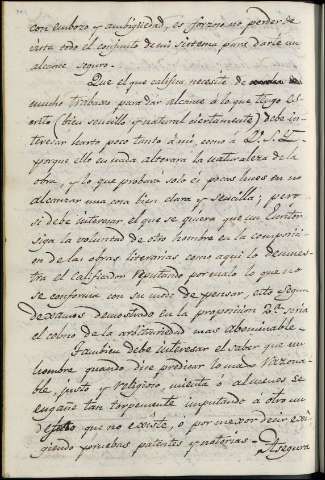 con embozo y ambigüedad, es forzoso no perder de
vista todo el conjunto de mi sistema para darle un
alcance seguro.
Que el que califica necesite de
mucho trabaxo para dar alcance á lo que tengo es-
crito (bien sencillo y natural ciertamente) debe in-
teresar harto poco tanto á mi, como á V.S.Y.
porque ello en nada alterara la naturaleza de la
obra, y lo que probará solo es pocas luces en no
alcanzar una cosa bien clara y sencilla; pero
si debe interesar el que se quiera que un hombre
siga la voluntad de otro hombre en la composici-
on de las obras literarias como aqui lo demues-
tra el calificador reputando por malo lo que no
se conforma con su modo de pensar, esto segun
dexamos demostrado en la proposicion 20.ª seria
el colmo de la arbitrariedad mas abominable.
Tambien debe interesar el saber que un
hombre quando dice predicar lo mas razona-
ble, justo y religioso, mienta ó al menos se
engañe tan torpemente imputando á otro un
defecto que no existe, ó por mexor decir exi-
giendo pruebas patentes y notorias. Asegura